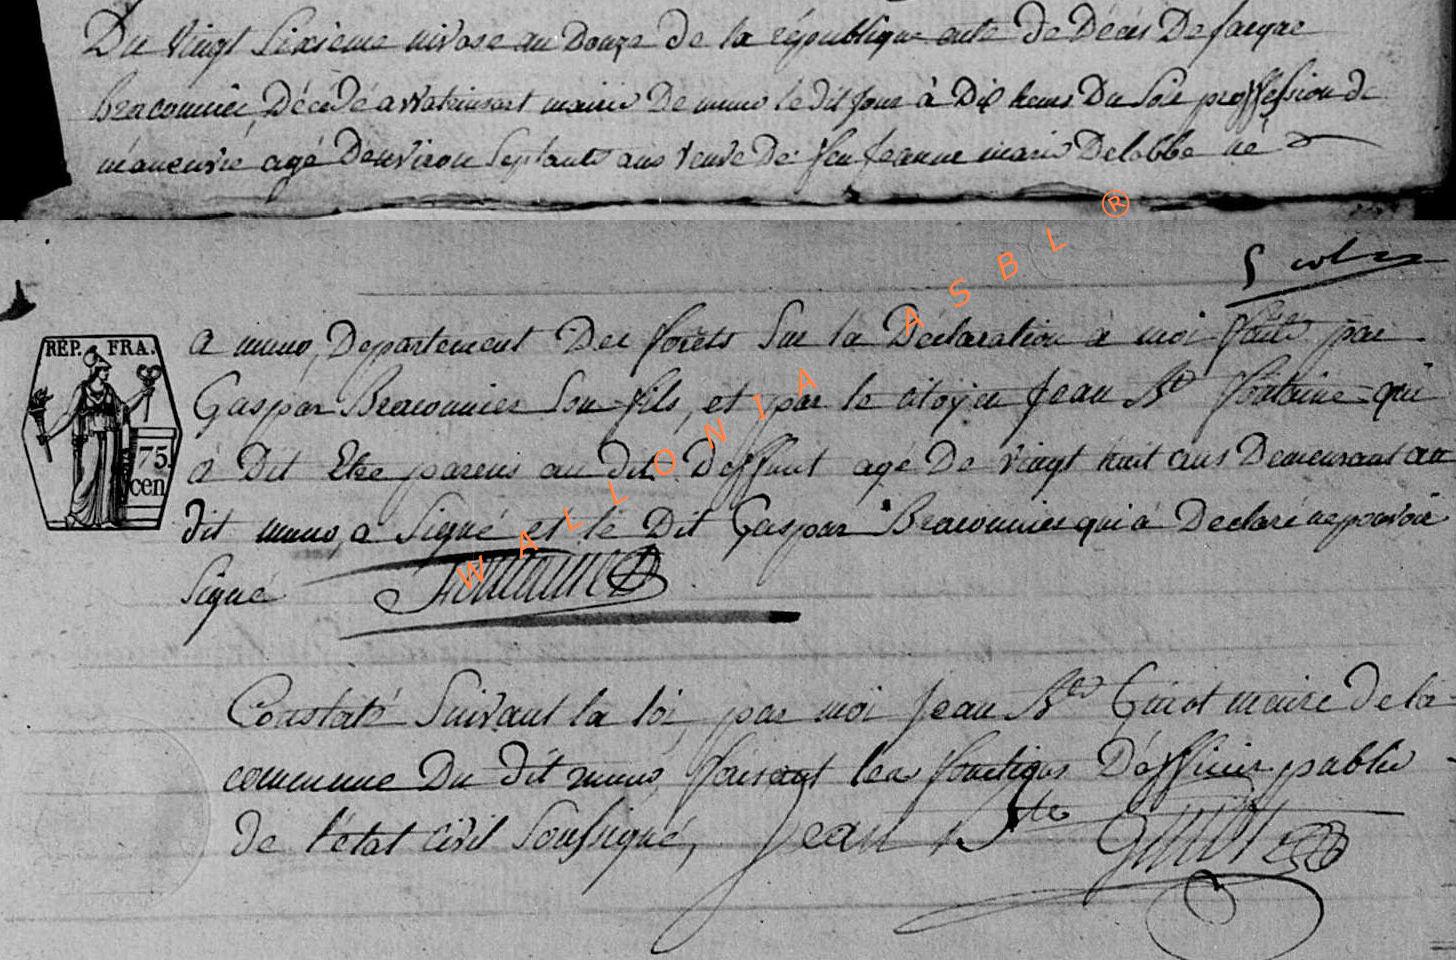 Du vingt Sixieme nivose an Douze de la république acte de Décès De jacque
braconnier, Décédé a Watrinsart mairie De muno le dit jour à Dix heures Du Soir proffession de
maneuvre agé Denviron Septante ans veuve De feu jeanne marie Delobbe né
®
A S B L
a muno, Departement Des forêts Sur la Déclaration à moi faite par
REP. FRA.
Gaspar Braconnier Son fils, et par le citoyen jean Bte fontaine qui
à Dit Etre parens au dit Deffunt agé De vingt huit ans Demeurant au
75.
cen
dit muno, a Signé et le Dit Gaspar Braconnier qui à Declaré ne pouvoir
Signé Fontaine
W A L L O N I A
Constaté Suivant la loi, par moi jean Bte Guiot maire de la
commune Du dit muno, faisant les fonctions D'officier public
de l'état civil Soussigné, Jean Bte Guiot